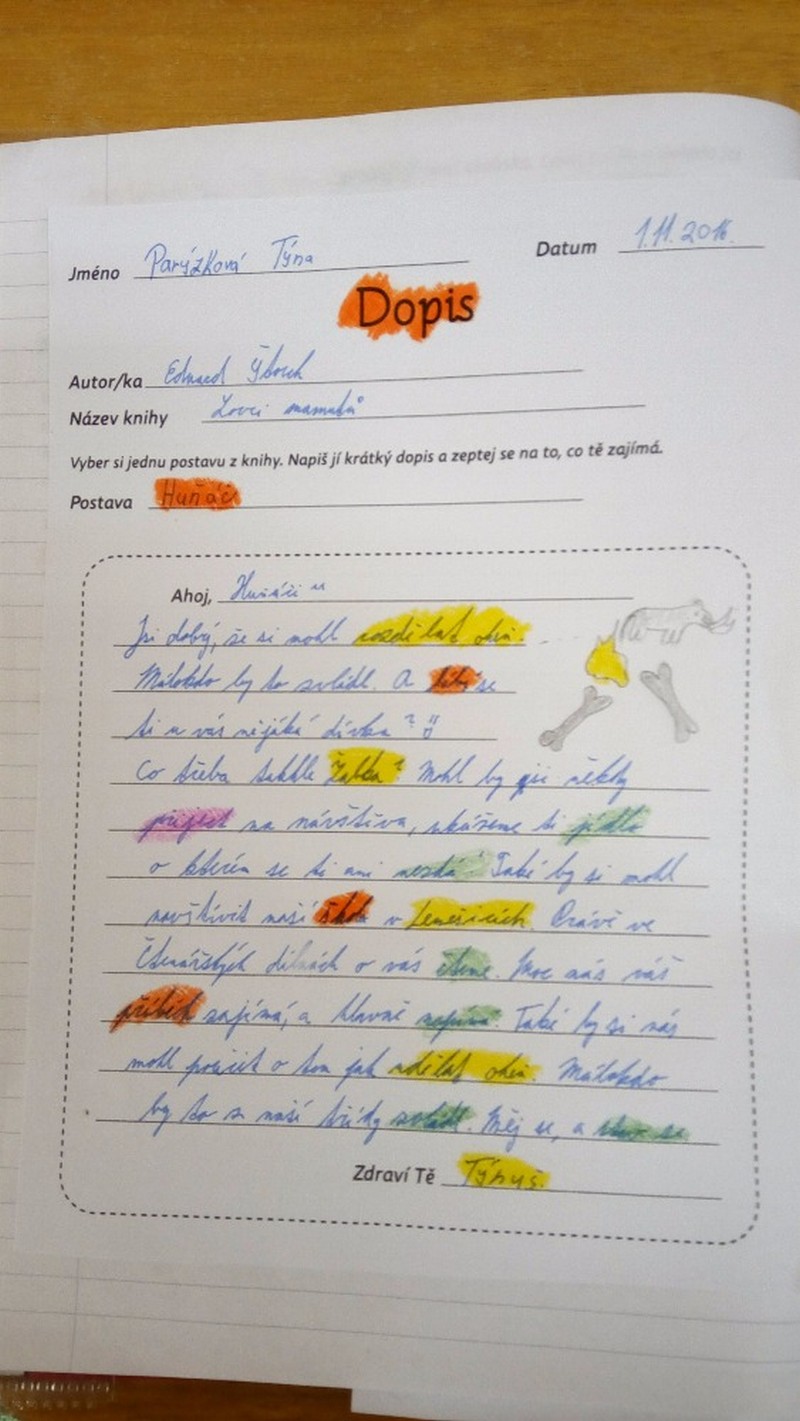 Jméno Parýzková Týna Datum 1.11.2016
Dopis
Autor/ka Eduard Štorch
Název knihy Lovci mamutů
Vyber si jednu postavu z knihy. Napiš jí krátký dopis a zeptej se na to, co tě zajímá.
Postava Huňáč
Ahoj, Huňáči
Jsi dobrý, že si mohl rozdělat oheň.
Málokdo by to svládl. A líbí se
ti u vás nějáká dívka?
Co třeba takhle Žabka? Mohl by jsi někdy
přijest na návštěvu, ukážeme ti jídlo
o kterém se ti ani nezdá! Také by si mohl
navštívit naší školu v Lenešicích. Právě ve
čtenářských dílnách o vás čteme. Moc nás váš
příběh zajímá, a hlavně Také by si nás
mohl poučit o tom jak udělat oheň. Málokdo
by to z naší třídy svládl. Měj se, a
Zdraví Tě Týnuš.